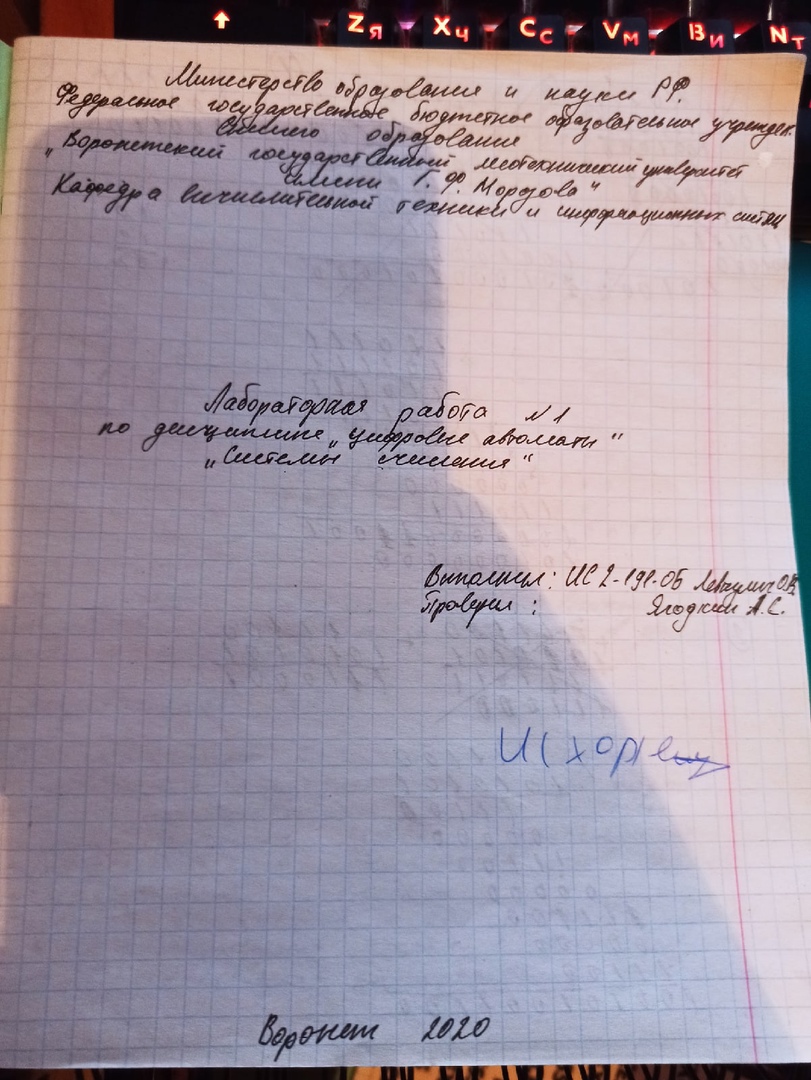 ↑ Z Я X Ч C С V М B И N Т
Министерство образования и науки РФ.
Федеральное государственное бюджетное образовательное учрежден.
высшего образования
„Воронежский государственный лесотехнический университет
имени Г. Ф. Морозова"
Кафедра вычислительной техники и информационных систем
Лабораторная работа №1
по дисциплине „Цифровые автоматы"
„Системы счисления"
Выполнил: ИС2-191-ОБ
Проверил : Ягодкин А.С.
Воронеж 2020